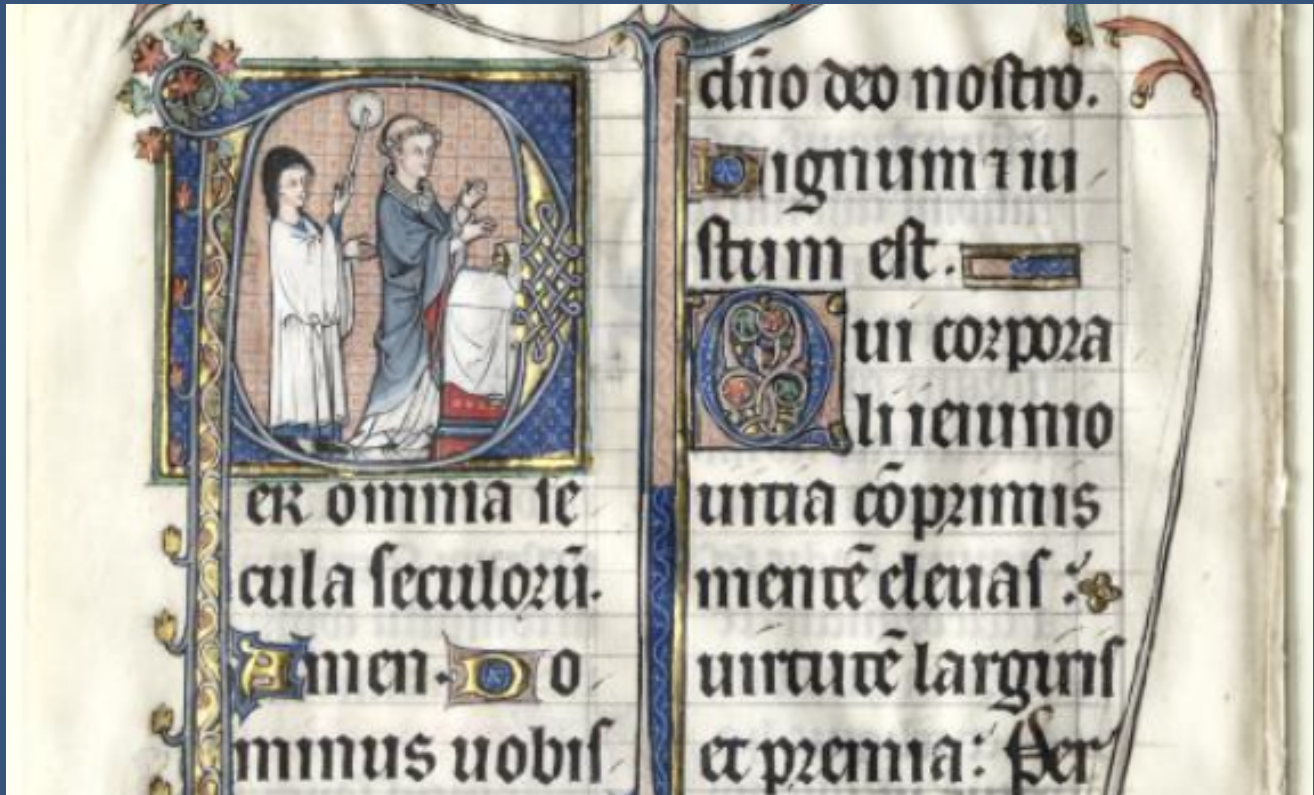 Per omnia se
cula seculorū.
Amen. Do
minus uobis
dño deo nostro.
Dignum ⁊ iu
stum est.
Qui corpora
li ieiunio
uitia cōprimis
mentē eleuas :
uirtutē largiris
et premia: Per